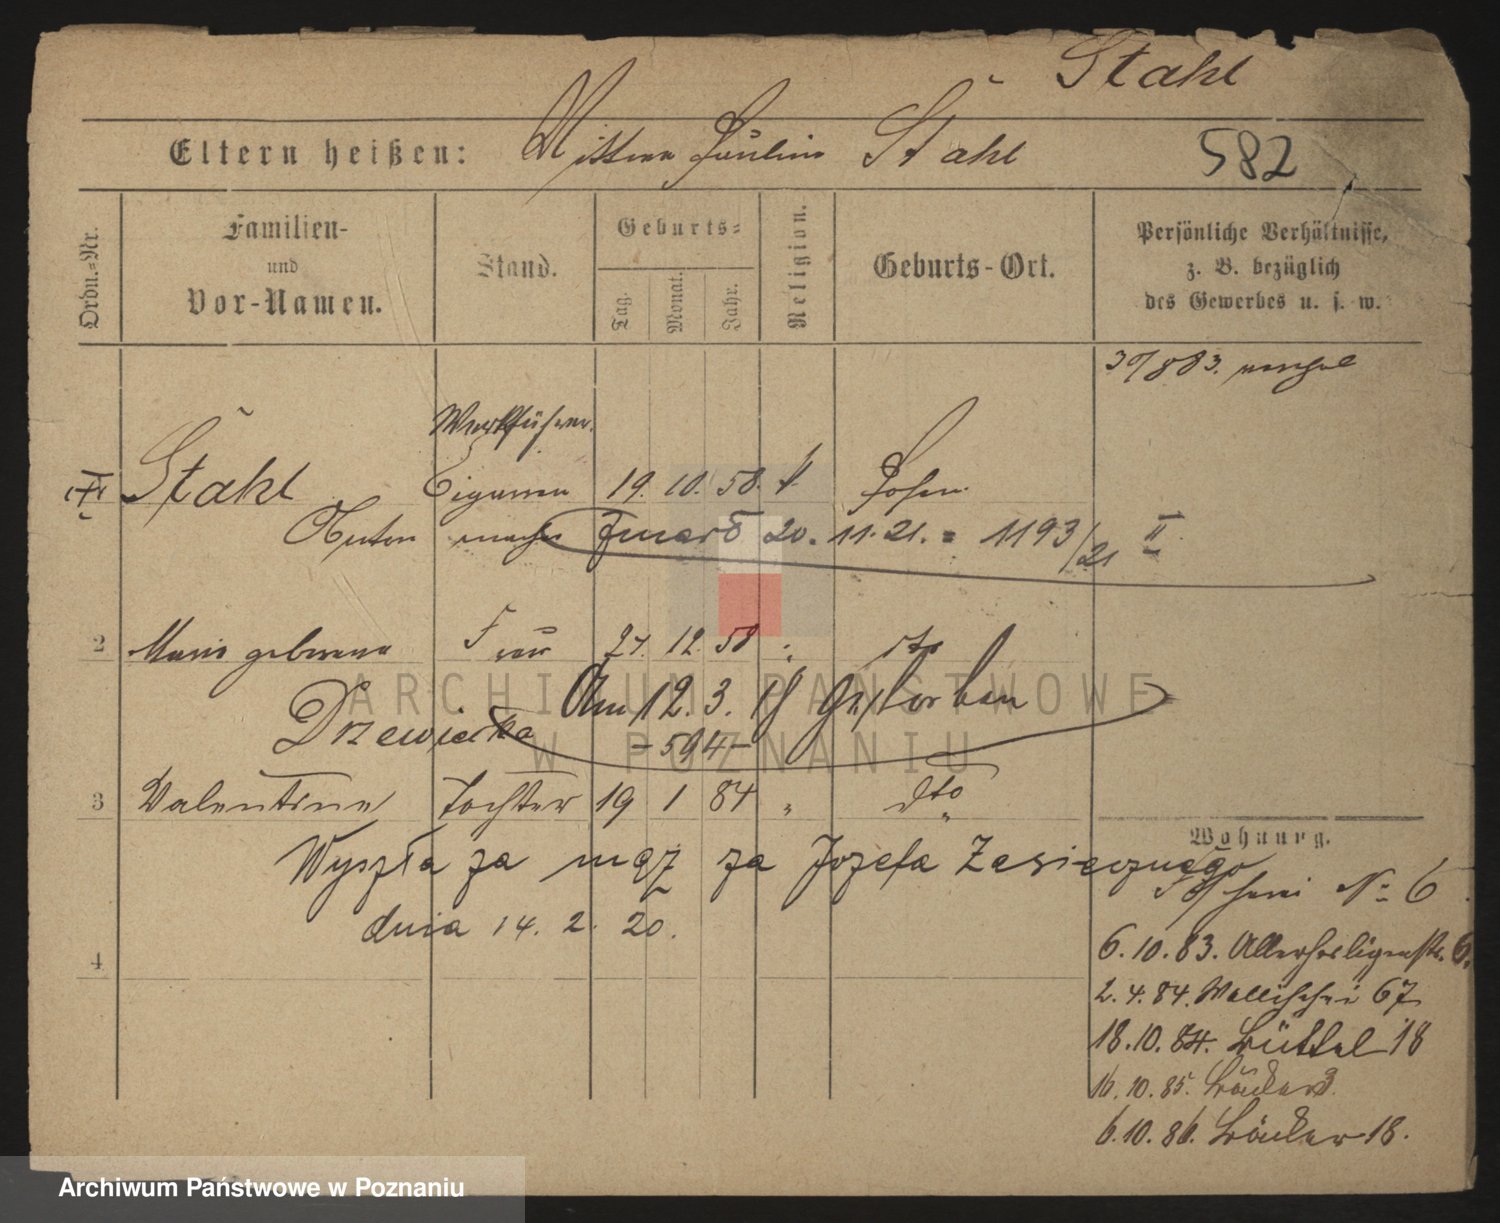 Stahl
Eltern heißen: Mutter Paulina Stahl
582
Ordn.-Nr.
Familien-
und
Vor-Namen.
Stand.
Geburts-
Tag.
Monat.
Jahr.
Religion.
Geburts-Ort.
Persönliche Verhältnisse,
z. B. bezüglich
des Gewerbes u. s. w.
83.
Werkführer.
Stahl Cigarren 19. 10. 58. k Posen
Anton macher Zmarł 20. 11. 21. = 1193/21 II
2 Maria geborene Frau 27. 12. 58 " dto
Drzewiecka Am 12. 3. 19 gestorben
-594-
3 Valentine Tochter 19 1 84 " dto
Wyszła za mąż za Józefa
dnia 14. 2. 20.
4
Wohnung.
No 6
6. 10. 83. Allerheiligenstr. 6.
2. 4. 84. Wallischei 67
18. 10. 84. Büttel 18
16. 10. 85.
6. 10. 86. 18.
ARCHIWUM PAŃSTWOWE
W POZNANIU
Archiwum Państwowe w Poznaniu